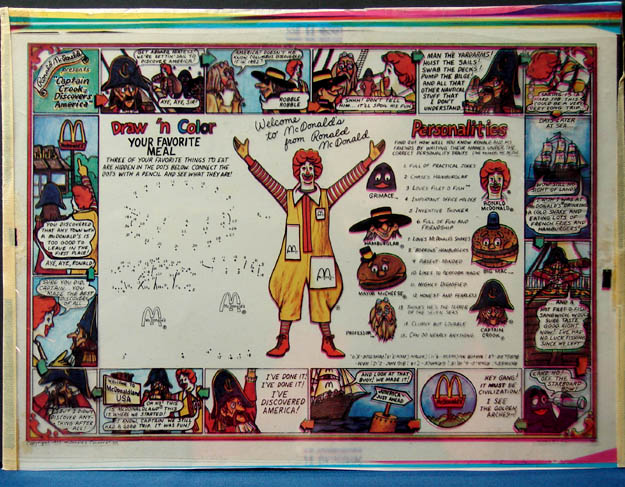 Ronald McDonald
presents
Captain
Crook
Discovers
America
WE'RE SETTIN' SAIL TO
DISCOVER AMERICA.
AYE, AYE, SIR!
AMERICA? DOESN'T HE
KNOW COLUMBUS DISCOVERED
ROBBLE
ROBBLE
SHHH! DON'T TELL
HIM... IT'LL SPOIL HIS FUN
MAN THE YARDARMS!
HOIST THE SAILS!
SWAB THE DECKS!
PUMP THE BILGE!
AND ALL THAT
OTHER NAUTICAL
STUFF THAT
I DON'T
UNDERSTAND.
COULD BE A VERY
VERY LONG TRIP.
DAYS LATER
AT SEA...
DRINKING
A COLD SHAKE AND
EATING LOTS OF
FRENCH FRIES AND
HAMBURGERS!
AND A
HOT FILET-O-FISH
SANDWICH WOULD
SURE TASTE
GOOD RIGHT
NOW! I'VE HAD
NO LUCK FISHING
SINCE WE LEFT
LAND HO!
OFF THE
STARBOARD
HEY GANG!
IT MUST BE
CIVILIZATION!
I SEE
THE GOLDEN
ARCHES!!!
AND LOOK AT THAT
BUOY! WE MADE IT!
AMERICA
JUST AHEAD
I'VE DONE IT!
I'VE DONE IT!
I'VE
DISCOVERED
AMERICA!
WELCOME TO
McDonaldland
USA
OH NO! THIS
IS McDONALDLAND! THIS
IS WHERE WE STARTED!
I KNOW, CAPTAIN. WE STILL
HAD A GOOD TRIP. IT WAS FUN!
BUT I DIDN'T
DISCOVER ANY-
THING AFTER
ALL!
SURE YOU DID,
CAPTAIN. YOU
MADE THE BEST
DISCOVERY
OF ALL
YOU DISCOVERED
THAT ANY TOWN WITH
A McDONALD'S IS
TOO GOOD TO
LEAVE IN THE
FIRST PLACE!
AYE AYE, RONALD!
Draw 'n Color
YOUR FAVORITE
MEAL
THREE OF YOUR FAVORITE THINGS TO EAT
ARE HIDDEN IN THE DOTS BELOW. CONNECT THE
DOTS WITH A PENCIL AND SEE WHAT THEY ARE!
Welcome
to McDonald's
from Ronald
McDonald
Personalities
FIND OUT HOW WELL YOU KNOW RONALD AND HIS
FRIENDS BY WRITING THEIR NAMES UNDER THE
CORRECT PERSONALITY TRAITS.
1 FULL OF PRACTICAL JOKES
2 CHASES HAMBURGLAR
3 LOVES FILET O FISH
4 IMPORTANT OFFICE HOLDER
5 INVENTIVE THINKER
6 FULL OF FUN AND
FRIENDSHIP
7 LOVES McDONALD'S SHAKES
8 BORROWS HAMBURGERS
9 ABSENT MINDED
10 LIKES TO PERFORM MAGIC
11 HIGHLY DIGNIFIED
12 HONEST AND FEARLESS
13 THINKS HE'S THE TERROR
OF THE SEVEN SEAS
14 CLUMSY BUT LOVABLE
15 CAN DO NEARLY ANYTHING
GRIMACE
RONALD
McDONALD
HAMBURGLAR
BIG MAC
MAYOR McCHEESE
PROFESSOR
CAPTAIN
CROOK